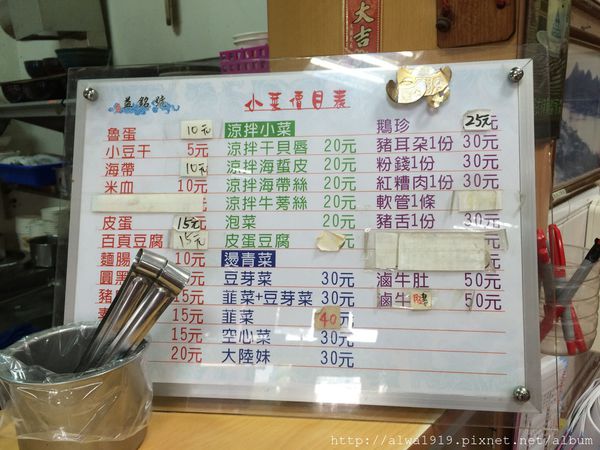 大吉
益銘號
小菜價目表
魯蛋 10元
小豆干 5元
海帶 10元
米血 10元
皮蛋 15元
百頁豆腐 15元
麵腸 10元
圓黑
豬
15元
15元
20元
涼拌小菜
涼拌干貝唇 20元
涼拌海蜇皮 20元
涼拌海帶絲 20元
涼拌牛蒡絲 20元
泡菜 20元
皮蛋豆腐
燙青菜
豆芽菜 30元
韮菜+豆芽菜 30元
韮菜 40元
空心菜 30元
大陸妹 30元
鵝珍 25元
豬耳朵1份 30元
粉錢1份 30元
紅糟肉1份 30元
軟管1條
豬舌1份 30元
滷牛肚 50元
滷牛腱 50元
http://alwa1919.pixnet.net/album